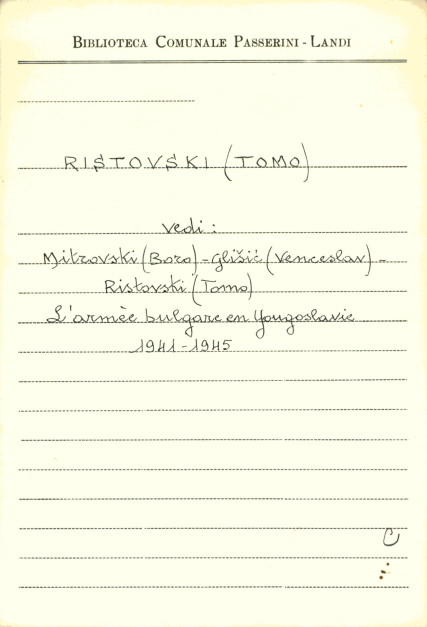 BIBLIOTECA COMUNALE PASSERINI - LANDI
RISTOVSKI (TOMO)
vedi :
Mitrovski (Boro) - Glišić (Venceslav) -
Ristovski (Tomo)
L'armèe bulgare en Yougoslavie
1941 - 1945
C